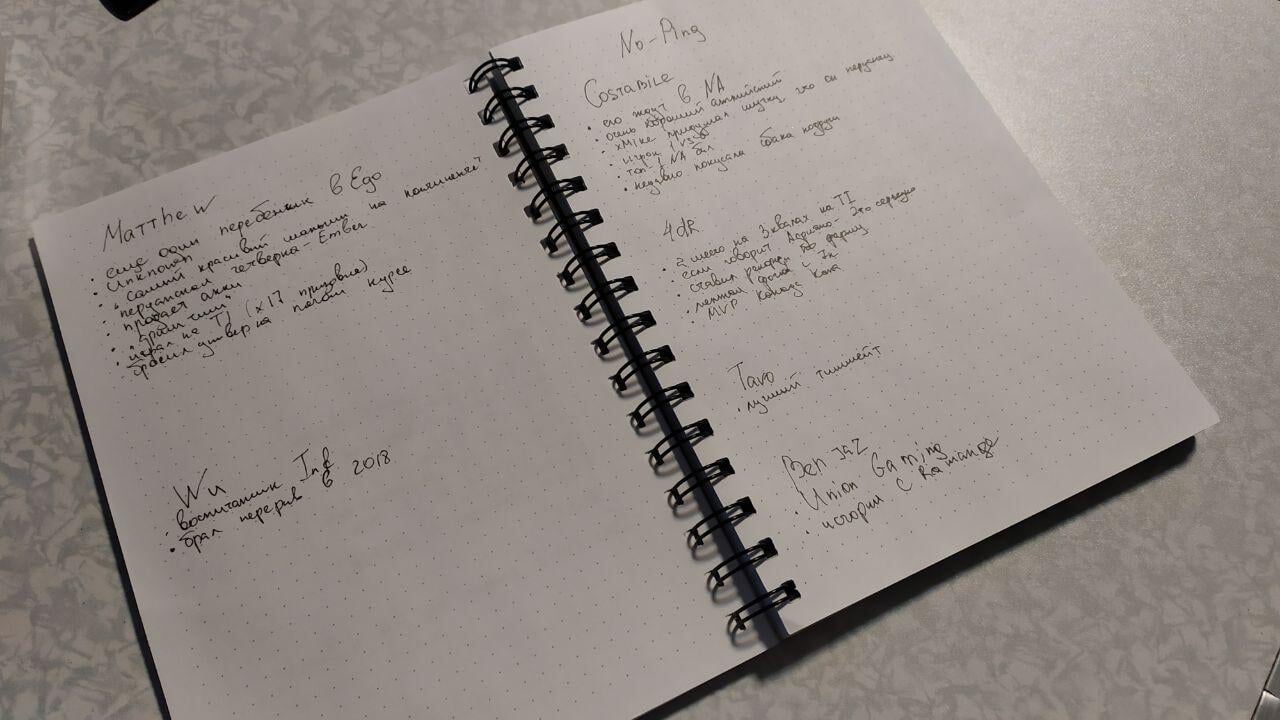 Matthew
• еще один перебежчик в Ego
• Инпошеп
• "самый красивый мальчик на континенте"
• перуанская четверка - Ember
• продает акки
• "Гробит тим"
• играл на TI (x17 призовые)
• бросил универ на пятом курсе
Wu
• воспитанник Inf
• брал перерыв в 2018
No-Ping
Costabile
• его ждут в NA
• очень хороший английский
• xMike придумал шутку что он перуанец
• игрок 1vs9
• топ 1 NA был
• недавно покусала собака подруги
4dR
• 2 место на 3 квалах на TI
• если говорит Адриано - это серьезно
• ставил рекорды по фарму
•
• MVP
Tavo
• лучший тиммейт
Benjaz
• Union Gaming
• истории с Ramange